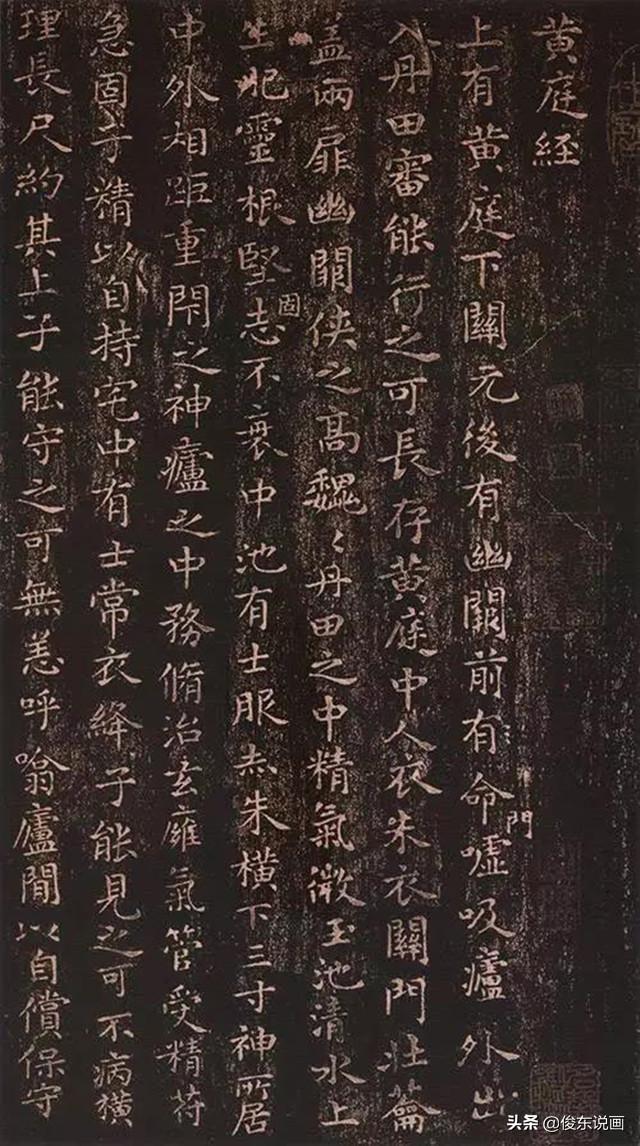 黄庭経
上有黄庭下關元後有幽闕前有命門嘘吸廬外出
入丹田審能行之可長存黄庭中人衣朱衣關門壮籥
盖兩扉幽闕俠之高巍〻丹田之中精氣微玉池清水上
生肥靈根堅志固不衰中池有士服赤朱橫下三寸神所居
中外相距重閇之神廬之中務脩治玄廱氣管受精符
急固子精以自持宅中有士常衣絳子能見之可不病橫
理長尺約其上子能守之可無恙呼噏廬間以自償保守
头条 @俊东说画